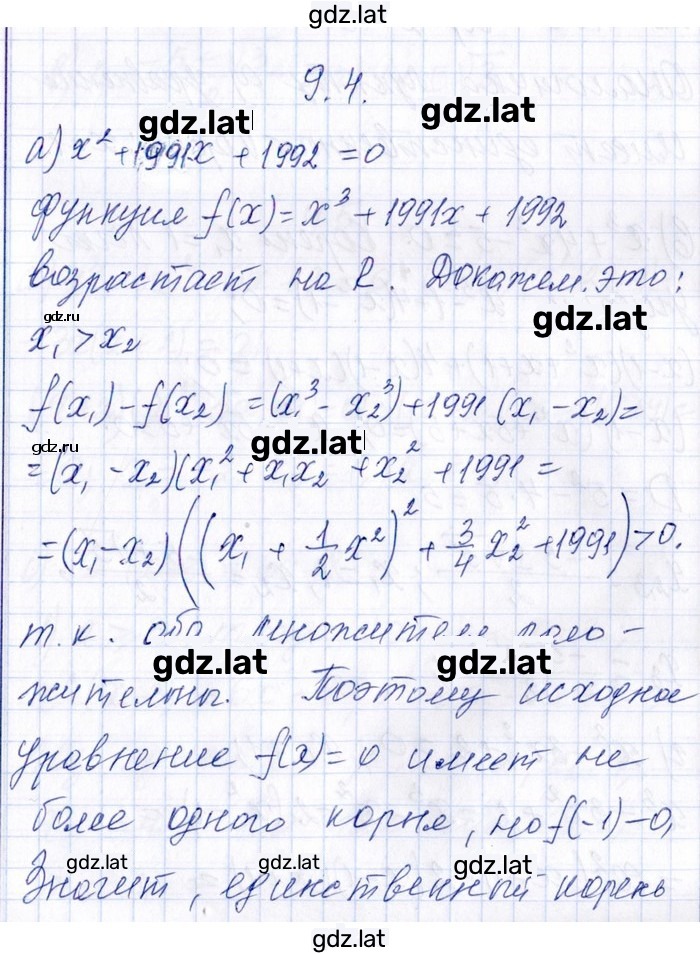 gdz.lat
9.4.
gdz.lat
а) x² + 1991x + 1992 = 0
функция f(x) = x³ + 1991x + 1992
возрастает на R. Докажем это:
gdz.ru
gdz.lat
x₁ > x₂
f(x₁) - f(x₂) = (x₁³ - x₂³) + 1991 (x₁ - x₂) =
gdz.ru
gdz.lat
= (x₁ - x₂)(x₁² + x₁x₂ + x₂² + 1991 =
= (x₁ - x₂)((x₁ + 1/2 x²)² + 3/4 x₂² + 1991) > 0.
т.к. оба множителя поло-
gdz.lat gdz.lat
жительны. Поэтому исходное
уравнение f(x) = 0 имеет не
более одного корня, но f(-1) - 0,
gdz.lat gdz.lat gdz.lat
Значит, единственный корень
gdz.lat